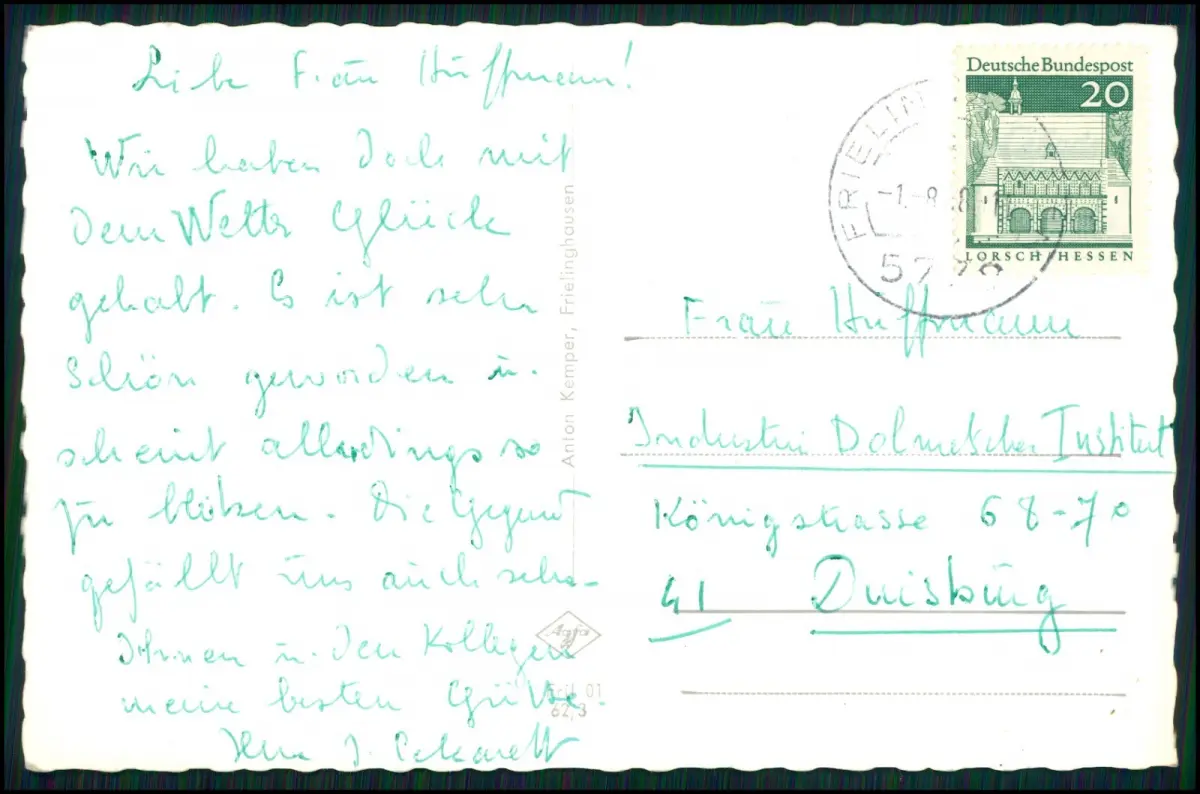 Liebe Frau Hüffmann!
Wir haben doch mit
dem Wetter Glück
gehabt. Es ist sehr
schön geworden u.
scheint allerdings so
zu bleiben. Die Gegend
gefällt uns auch sehr.
Ihnen u. den Kollegen
meine besten Grüße.
J. Eckardt
Anton Kemper, Frielinghausen
Agfa
Fril 01
62,3
Deutsche Bundespost
20
LORSCH HESSEN
FRIELIN
-1.-8.
Frau Hüffmann
Industrie Dolmetscher Institut
Königstrasse 68-70
41 Duisburg